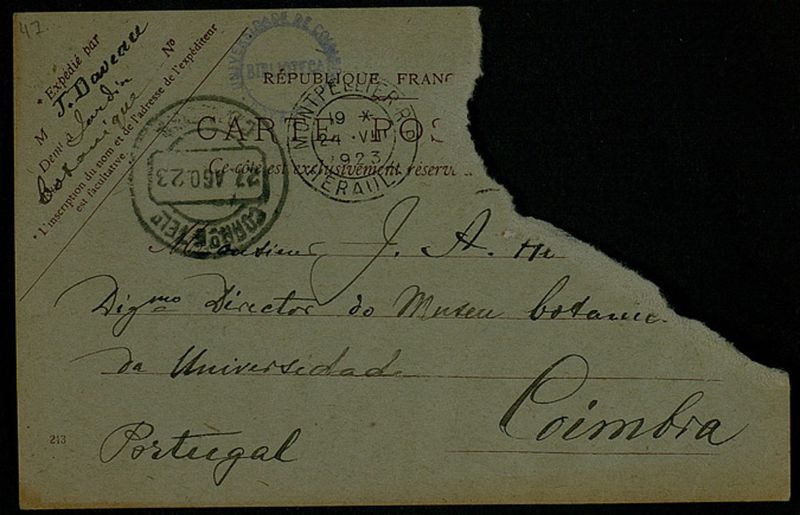 47
* Expédié par Nº
M J. Daveau
Demt à Jardin
botanique
* L'inscription du nom et de l'adresse de l'expéditeur
est facultative.
UNIVERSIDADE DE COIM
BIBLIOTECA
RÉPUBLIQUE FRANÇ
CARTE POS
Ce côté est exclusivement réservé
MONTPELLIER RP
19 *
24 VII
1923
HERAULT
27 AGO. 23
CORREIO
Monsieur J. A. He
Digmo Director do Museu botanic
da Universidade
Coimbra
213
Portugal